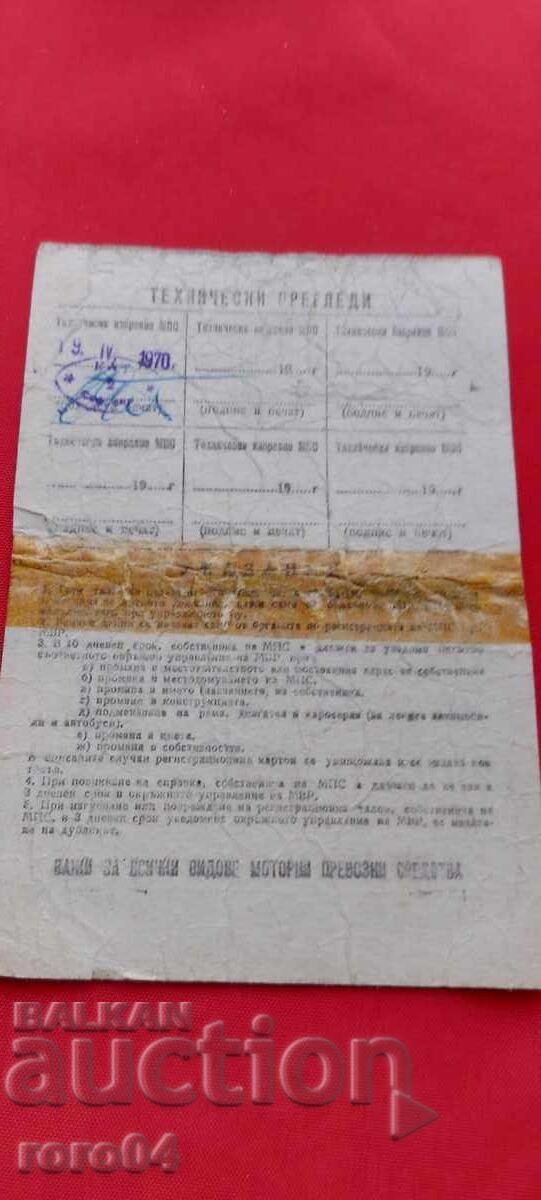 ТЕХНИЧЕСКИ ПРЕГЛЕДИ
Технически изправно МПС Технически изправно МПС Технически изправно МПС
19. IV. 1970. 19.....г 19.....г
(подпис и печат) (подпис и печат)
Технически изправно МПС Технически изправно МПС Технически изправно МПС
19.....г 19.....г 19.....г
(подпис и печат) (подпис и печат) (подпис и печат)
УКАЗАНИЯ
МВР.
3. В 10 дневен срок, собственика на МПС е длъжен да уведоми писмено
управление на МВР при:
а) промяна в местожителството или постоянния адрес на собственика
б) промяна в местодомуването на МПС.
в) промяна в името на собственика.
г) промяна в конструкцията.
д) подменяване на рама, двигател и каросерия (за леки автомоби-
ли и автобуси).
е) промяна в цвета.
ж) промяна в собствеността.
В описаните случаи регистрационния картон се унищожава и се издава нов
4. При поискване на справка, собственика на МПС е длъжен да се яви в
3 дневен срок в окръжното управление на МВР.
5. При изгубване или повреждане на регистрационния талон, собственика на
МПС, в 3 дневен срок уведомява окръжното управление на МВР, за издава-
не на дубликат.
ВАЖИ ЗА ВСИЧКИ ВИДОВЕ МОТОРНИ ПРЕВОЗНИ СРЕДСТВА
BALKAN
auction
roro04